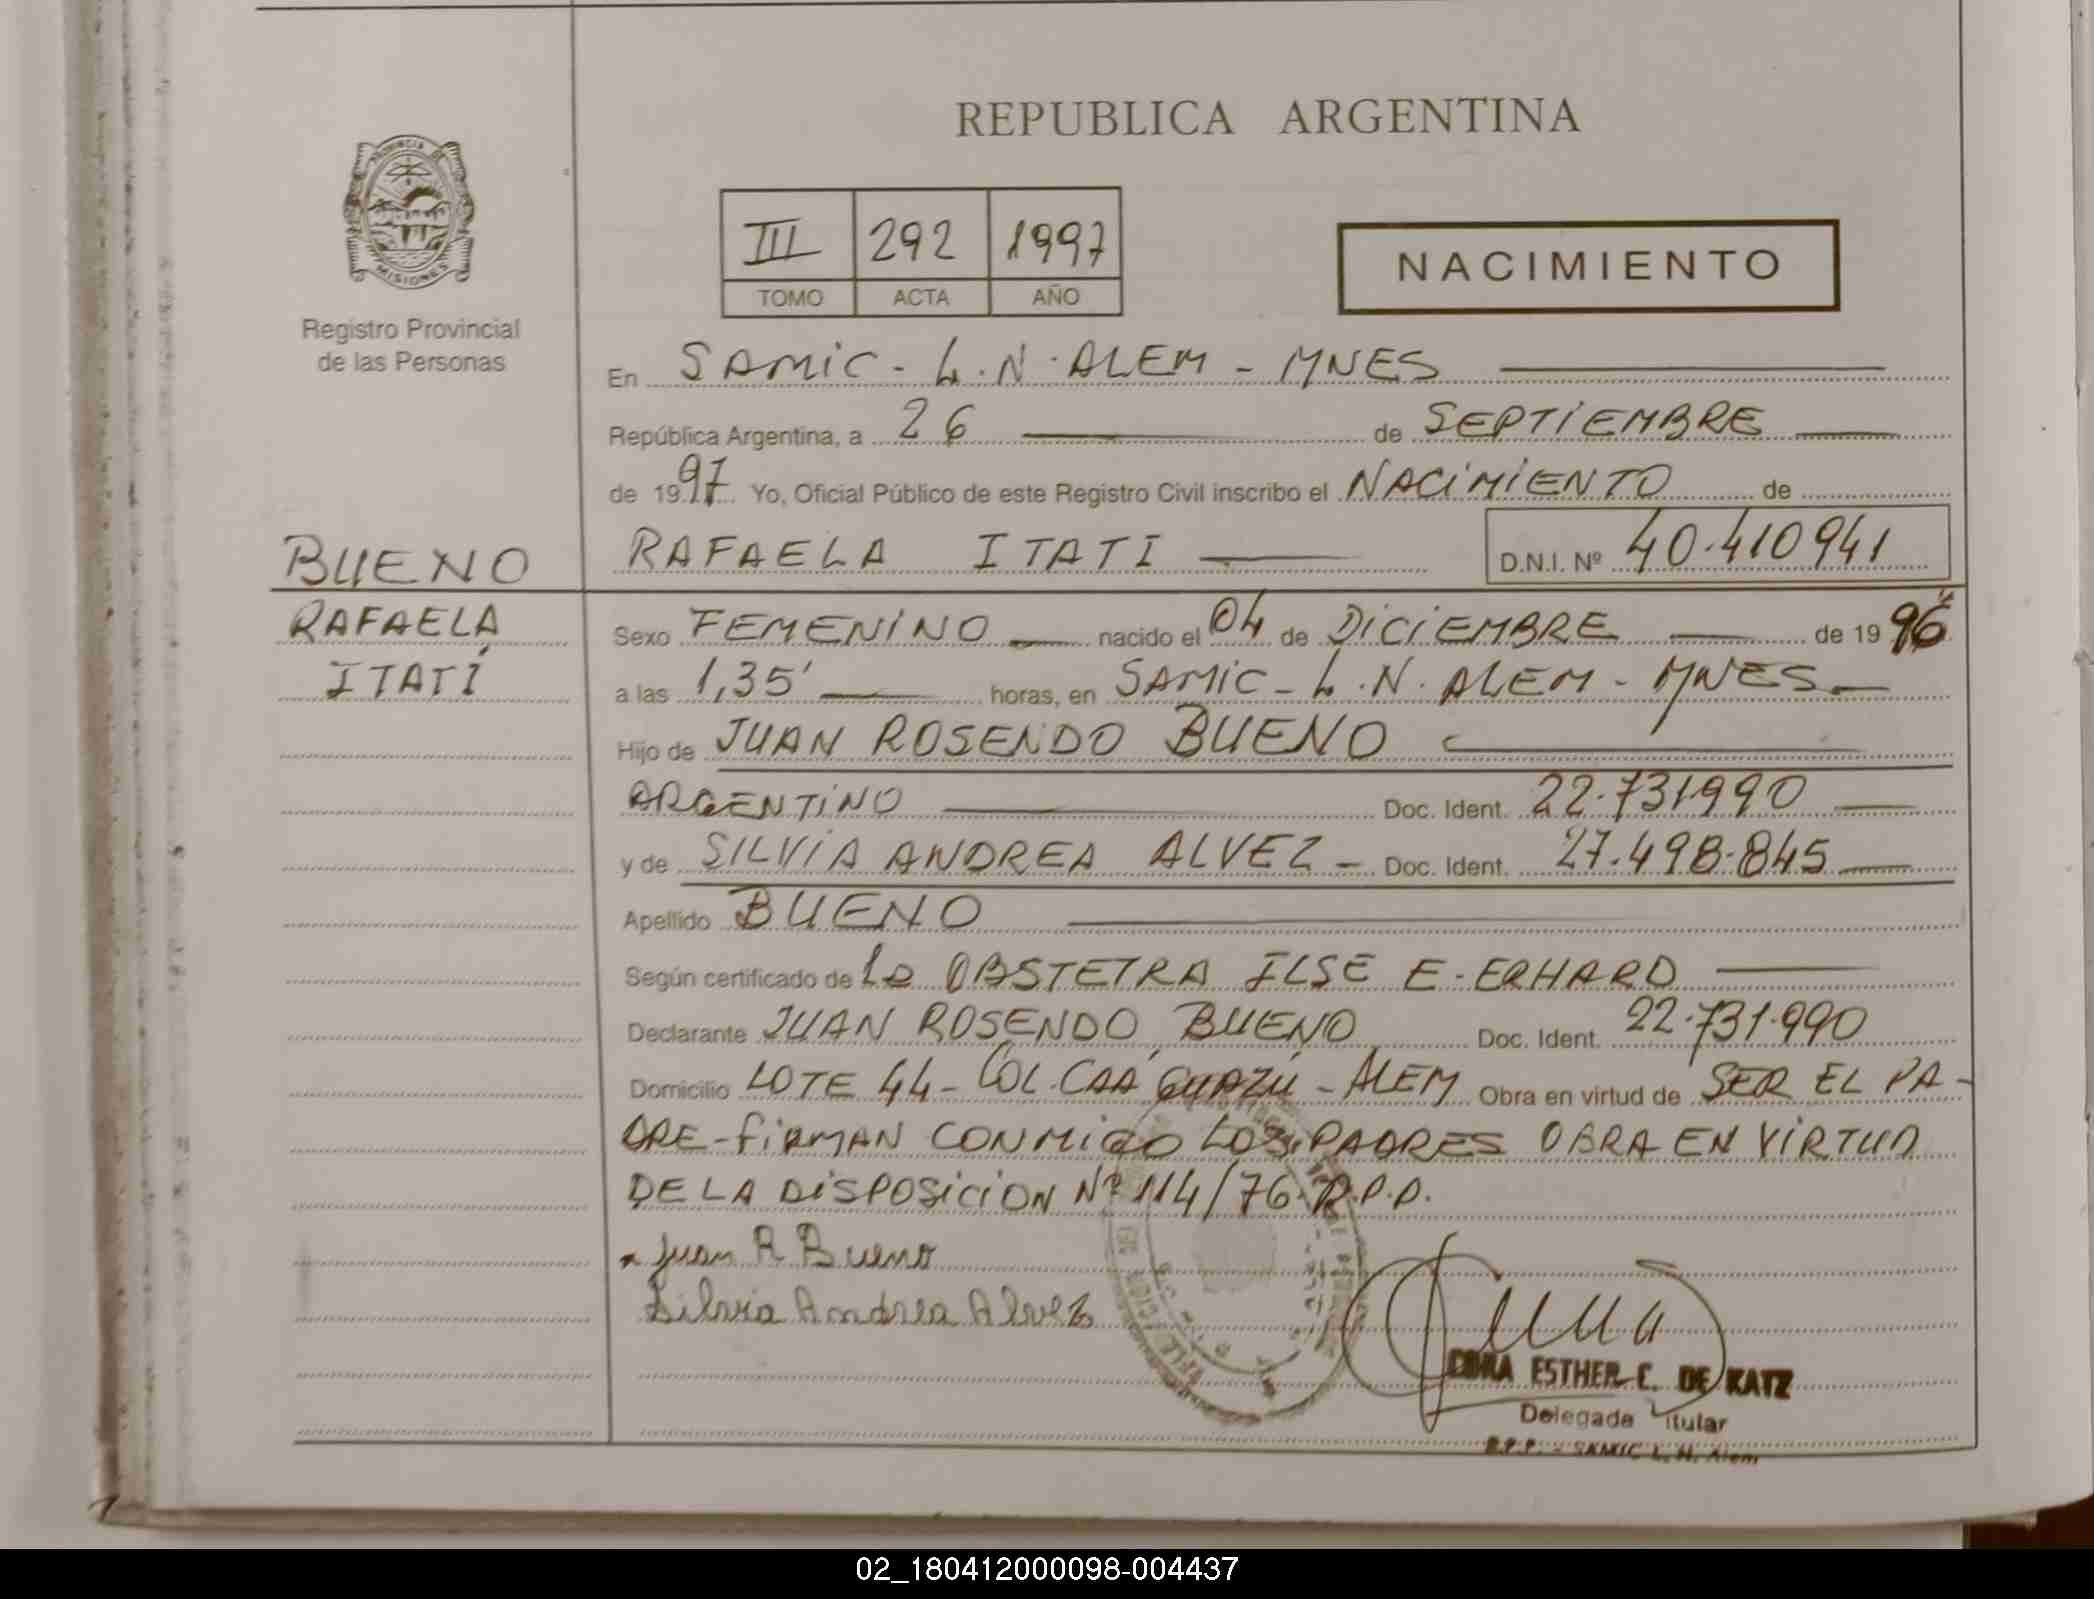 REPUBLICA ARGENTINA
PROVINCIA DE MISIONES
Registro Provincial
de las Personas
III 292 1997
TOMO ACTA AÑO
NACIMIENTO
En SAMIC - L.N. ALEM - MNES
República Argentina, a 26 de SEPTIEMBRE
de 1997 Yo, Oficial Público de este Registro Civil inscribo el NACIMIENTO de
BUENO
RAFAELA ITATI D.N.I. Nº 40.410941
RAFAELA
ITATÍ
Sexo FEMENINO nacido el 04 de DICIEMBRE de 1996
a las 1,35' horas, en SAMIC - L.N. ALEM - MNES
Hijo de JUAN ROSENDO BUENO
ARGENTINO Doc. Ident. 22.731990
y de SILVIA ANDREA ALVEZ - Doc. Ident. 27.498.845
Apellido BUENO
Según certificado de La OBSTETRA ILSE E. ERHARD
Declarante JUAN ROSENDO BUENO Doc. Ident. 22.731.990
Domicilio LOTE 44 - COL. CAA GUAZÚ - ALEM Obra en virtud de SER EL PA-
DRE - FIRMAN CONMIGO LOS PADRES OBRA EN VIRTUD
DE LA DISPOSICION Nº 114/76. R.P.P.
Juan R Bueno
Silvia Andrea Alvez
ESTHER C. DE KATZ
Delegada Titular
R.P.P. - SAMIC L. N. Alem
02_180412000098-004437